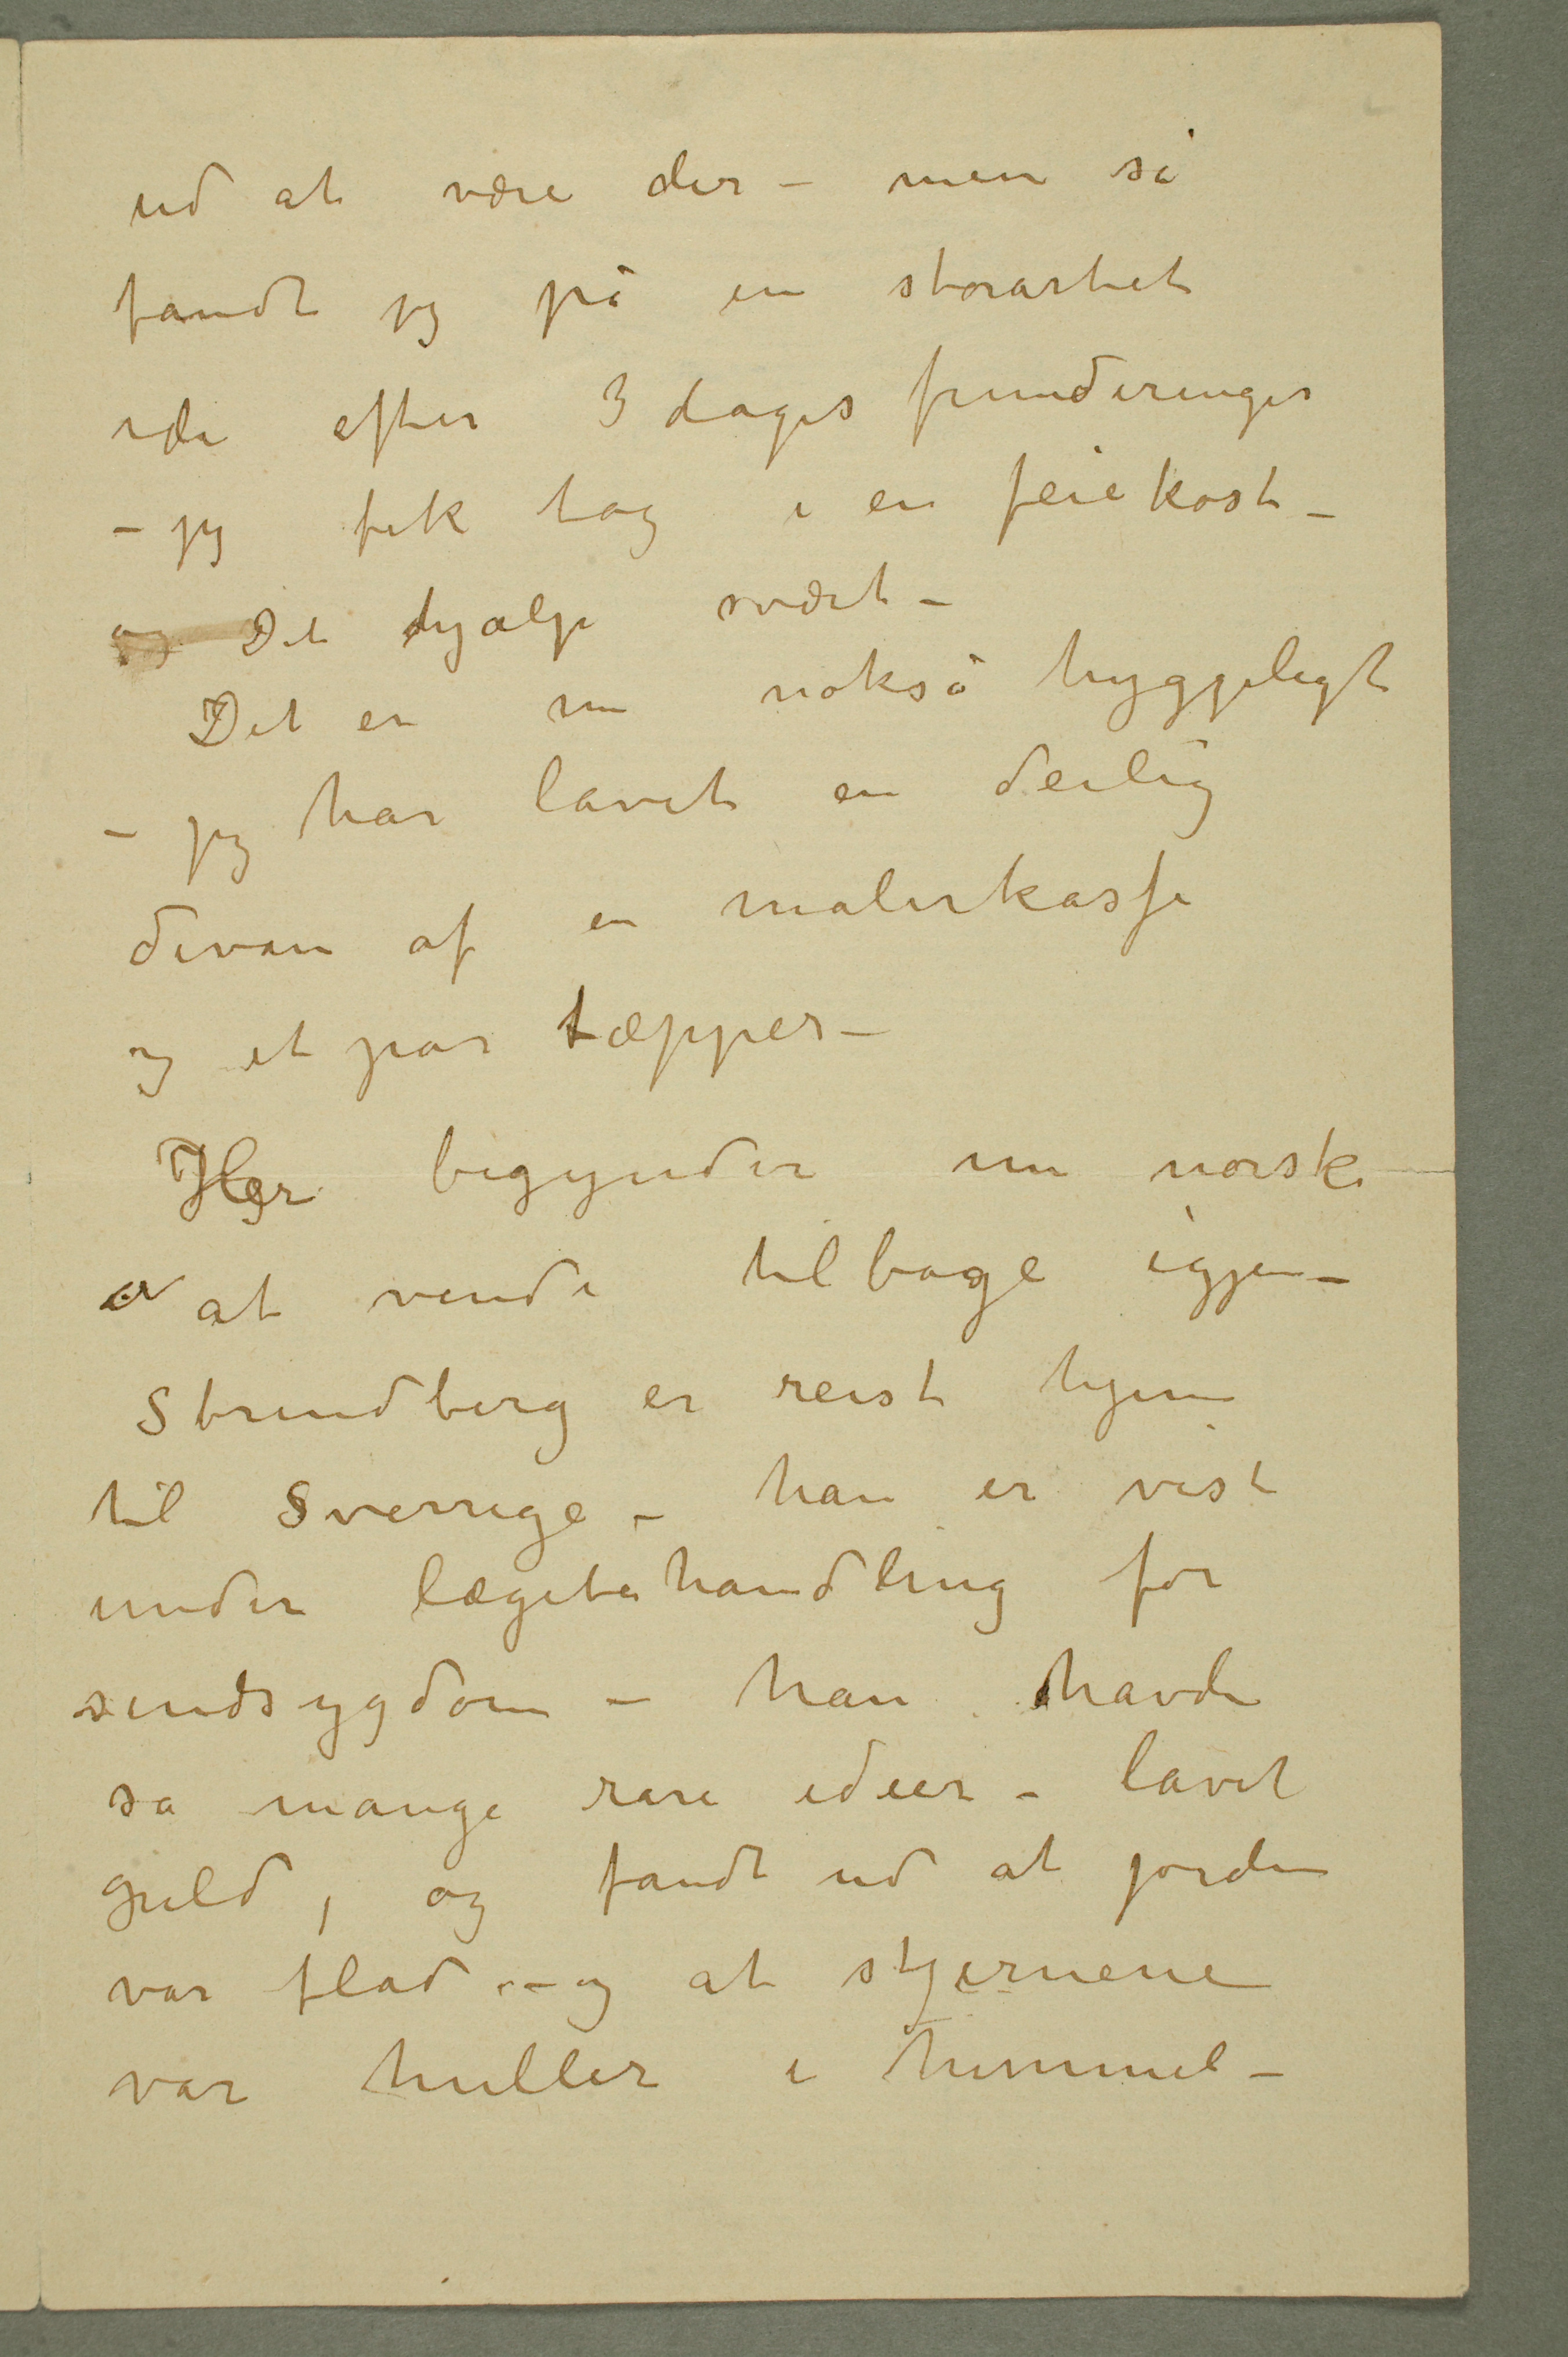 ud at være der – men så
fandt jeg på en storartet
ide efter 3 dages funderinger
– jeg fik tag i en feiekost –
og Det hjalp svært –
Det er nu nokså hyggeligt
– jeg har lavet en deilig
divan af en malerkasse
og et par tæpper –
Her begynder nu norske
at vende tilbage igjen –
Strindberg er reist hjem
til Sverrige – han er vist
under lægebehandling for
sindsygdom – han havde
så mange rare ideer – lavet
guld, og fandt ud at jorden
var flad – og at stjernene
var huller i himmel –